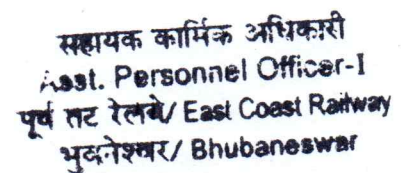 सहायक कार्मिक अधिकारी
Asst. Personnel Officer-I
पूर्व तट रेलवे/ East Coast Railway
भुवनेश्वर/ Bhubaneswar